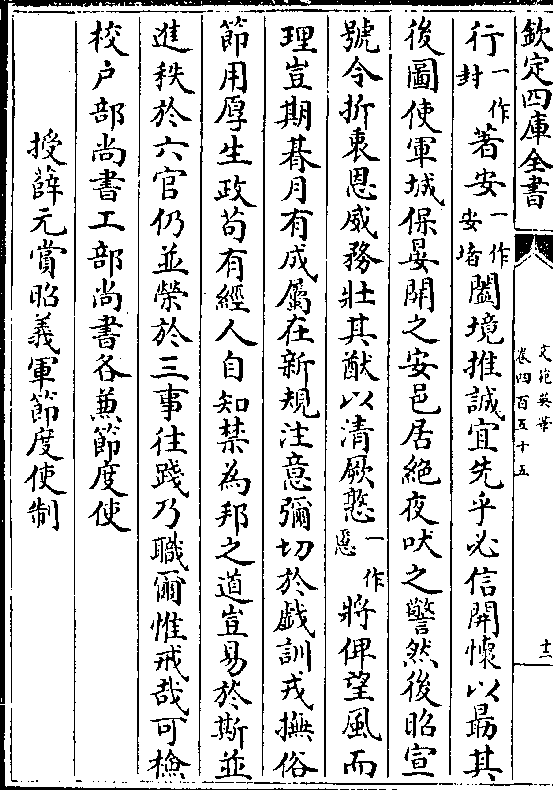 欽定四庫全書
文苑英華
卷四百五十五
十二
行一作封著安一作安堵闔境推誠宜先乎必信開懷以最其
後圖使軍城保晏閉之安邑居絶夜吠之警然後昭宣
號令折衷恩威務壯其猷以清厥憝一作慝將俾望風而
理豈期朞月有成屬在新規注意彌切於戲訓戎撫俗
節用厚生政茍有經人自知禁為邦之道豈易於斯並
進秩於六官仍並榮於三事往踐乃職爾惟戒哉可檢
校户部尚書工部尚書各兼節度使
授薛元賞昭義軍節度使制